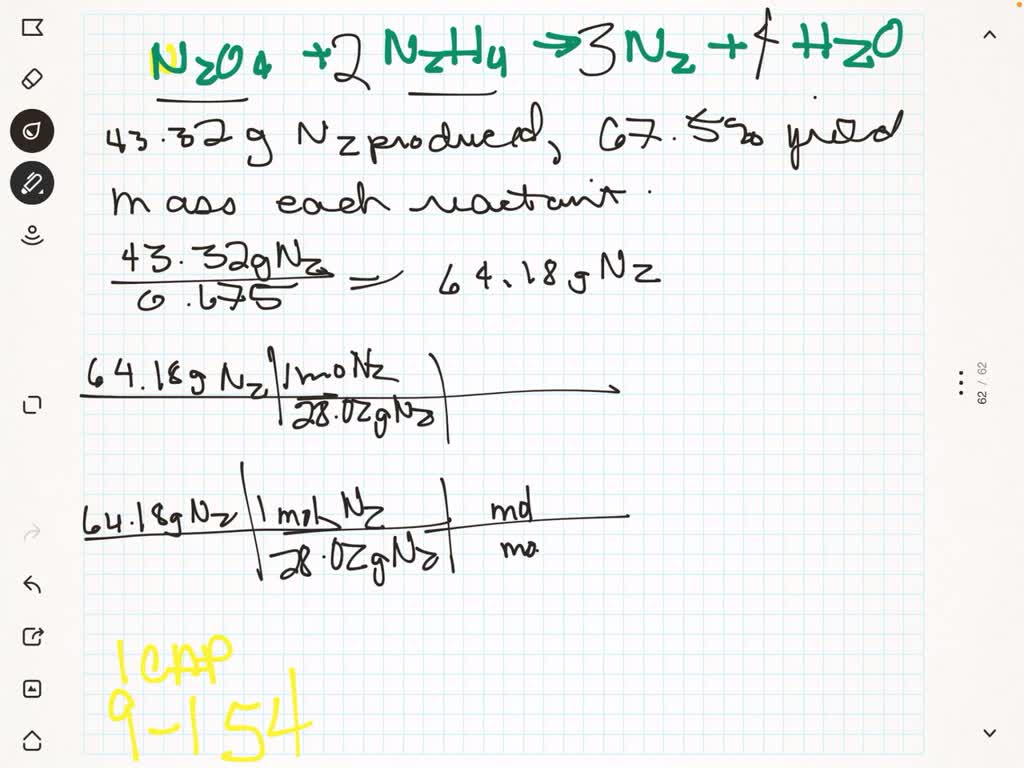 N2O4 + 2 N2H4 → 3 N2 + 4 H2O
43.32 g N2 produced, 67.5% yield
mass each reactant.
43.32 g N2
0.675
= 64.18 g N2
64.18 g N2 | 1 mo N2 |
28.02 g N2
64.18 g N2 | 1 mol N2 | mol
28.02 g N2 | mo
1 CAP
9-154
62 / 62